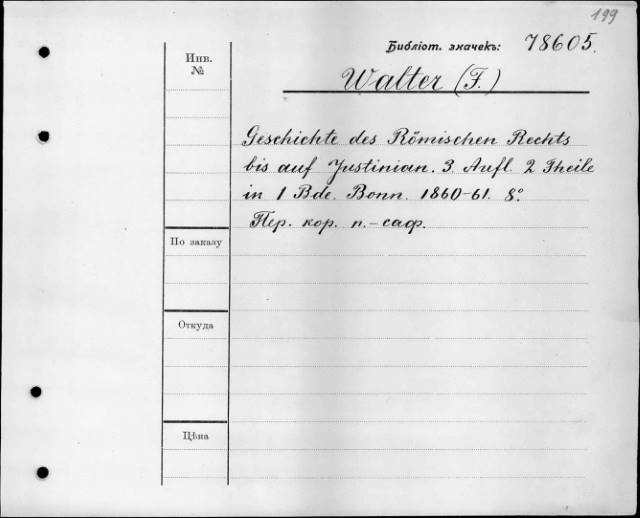 199
Библіот. значекъ: 78605.
Walter (F.)
Инв.
№
Geschichte des Römischen Rechts
bis auf Justinian. 3. Aufl. 2 Theile
in 1 Bde. Bonn. 1860-61. 8°.
Пер. кор. п.-саф.
По заказу
Откуда
Цѣна